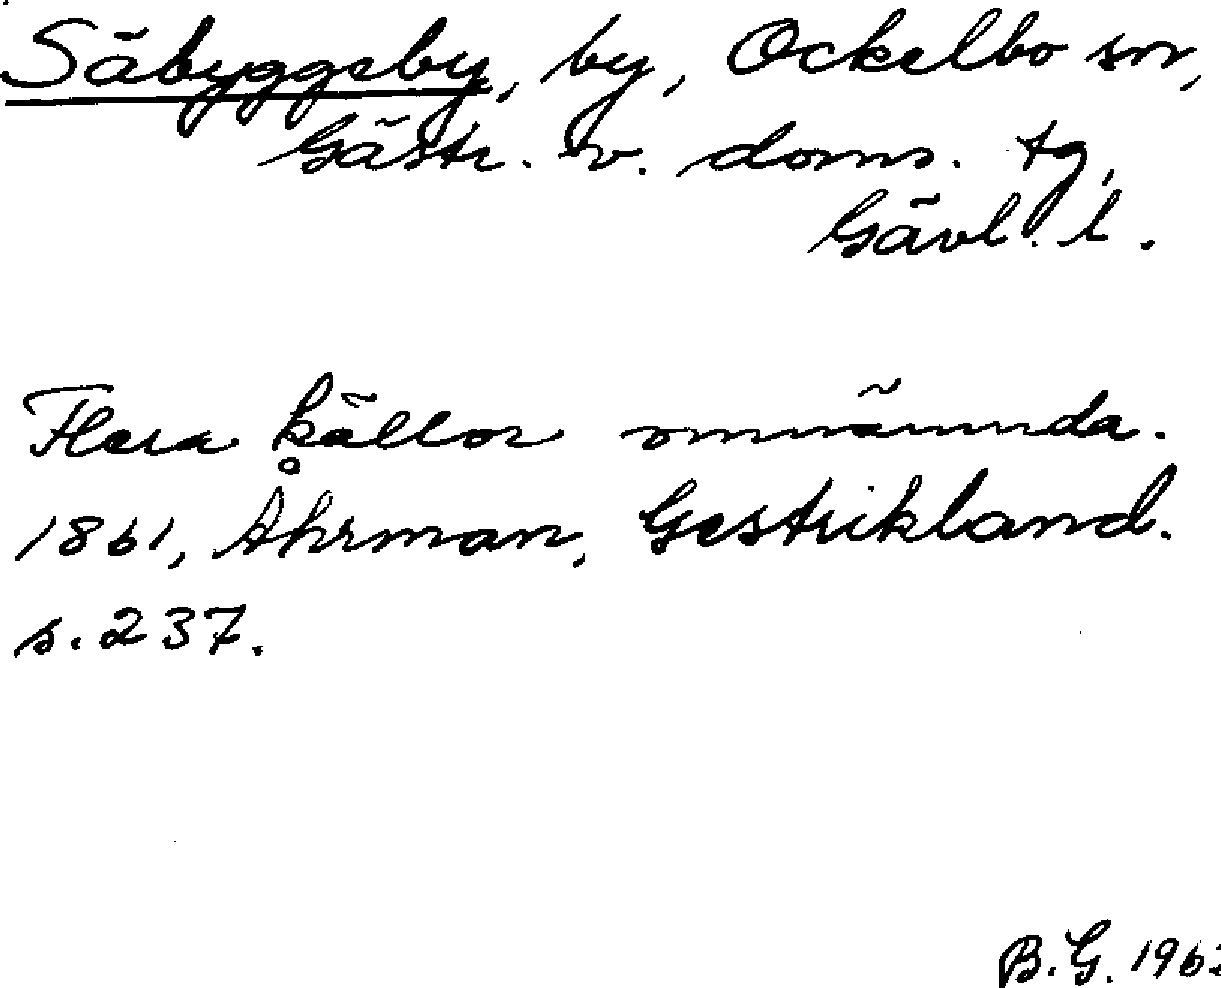 Säbyggeby, by, Ockelbo sn,
Gästr. v. doms. tg,
Gävl. l.
Flera källor omnämnda.
1861, Åhrman, Gestrikland.
s. 237.
B.G.